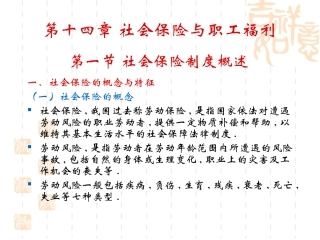 第十四章 社会保险与职工福利
第一节 社会保险制度概述
一、社会保险的概念与特征
（一）社会保险的概念
社会保险，我国过去称劳动保险，是指国家依法对遭遇
劳动风险的职业劳动者，提供一定物质补偿和帮助，以
维持其基本生活水平的社会保障法律制度．
劳动风险，是指劳动者在劳动年龄范围内所遭遇的风险
事故，包括自然的身体或生理变化，职业上的灾害及工
作机会的丧失等．
劳动风险一般包括疾病，负伤，生育，残疾，衰老，死亡，
失业等七种类型．